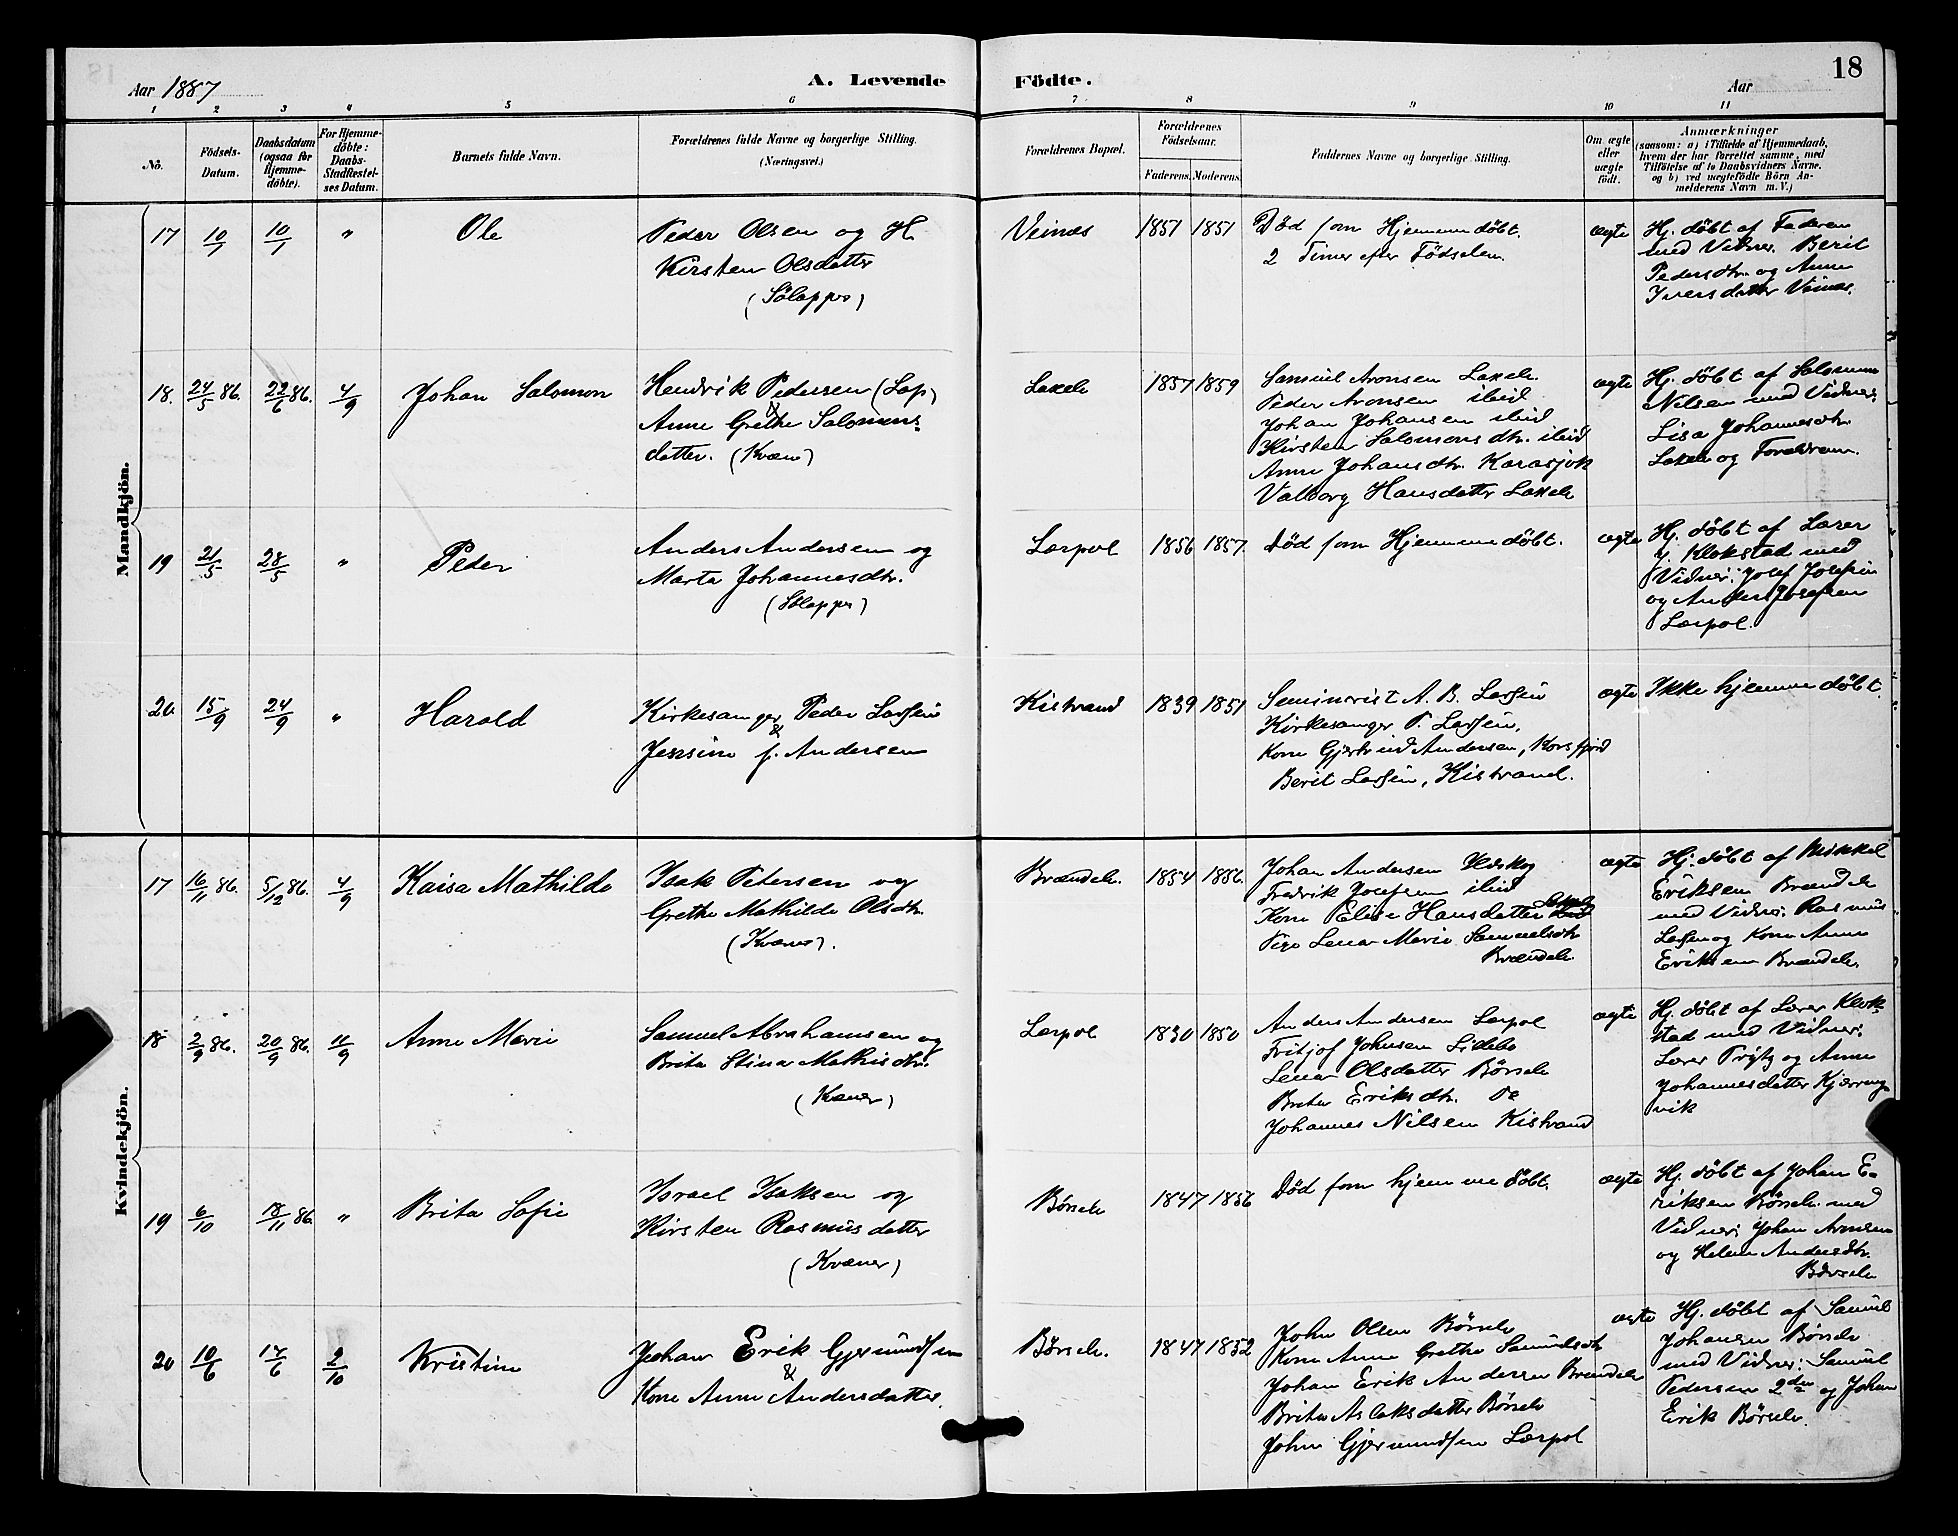 Aar 1887
A. Levende
Födte.
Aar
18
1 2 3 4 5 6 7 8 9 10 11
No.
Födsels-
Datum.
Daabsdatum
(ogsaa for
Hjemme-
döbte).
For Hjemme-
döbte:
Daabs-
Stadfæstel-
ses Datum.
Barnets fulde Navn.
Forældrenes fulde Navne og borgerlige Stilling.
(Næringsvei.)
Forældrenes Bopæl.
Forældrenes
Födselsaar.
Faderens.
Moderens.
Faddernes Navne og borgerlige Stilling.
Om ægte
eller
uægte
født.
Anmærkninger
(saasom: a) i Tilfælde af Hjemmedaab,
hvem der har forrettet samme, med
Tilföielse af to Daabsvidners Navne.
og b) ved uægtefödte Börn An-
melderens Navn m. V.)
Mandkjön.
17
10/7
10/7
"
Ole
Peder Olsen og H.
Kirsten Olsdatter
(Sölapper)
Veinæs
1857
1857
Død som Hjemmedöbt.
2 Timer efter Fødselen.
ægte
Hj. døbt af Faderen
med Vidner: Berit
Pedersdtr. og Anne
Iversdatter Veinæs.
18.
24/5 86.
22/6 86.
4/9
Johan Salomon
Hendrik Pedersen (Lap)
&
Anne Grethe Salomons-
datter. (Kvæn)
Laxelv
1857
1859
Samuel Aronsen Laxelv
Peder Aronsen ibid
Johan Johansen ibid
Kirsten Salomonsdtr. ibid
Anne Johansdtr. Karasjok
Valborg Hansdatter Laxelv
ægte
Hj. døbt af Salomon
Nilsen med Vidner:
Lisa Johannesdtr.
Laxelv og Forældrene.
19
21/5
28/5
"
Peder
Anders Andersen og
Marta Johannesdtr.
(Sölapper)
Lærpol
1856
1857.
Død som Hjemmedøbt.
ægte
Hj. døbt af Lærer
J. Klokstad med
Vidner: Josef Josefsen
og Anders Josefsen
Lærpol.
20
15/9
24/9
"
Harald
Kirkesanger Peder Larsen
&
Jensine f. Andersen
Kistrand
1839
1851
Seminarist A. B. Larsen
Kirkesanger P. Larsen,
Kone Gjertrud Andersen, Korsfjord
Berit Larsen, Kistrand.
ægte
Ikke hjemmedøbt.
Kvindekjön.
17
16/11 86.
5/12 86.
4/9
Kaisa Mathilde
Isak Petersen og
Grethe Mathilde Olsdtr.
(Kvæner).
Brændelv.
1854
1856.
Johan Andersen
Fredrik Josefsen ibid
Kone Elise Hansdatter
Pige Lena Marie Samuelsdtr
Brændelv
ægte
Hj. døbt af Mikkel
Eriksen Brændelv
med Vidner: Rasmus
Larsen og Kone Anna
Eriksen Brændelv.
18
2/9 86.
20/9 86.
11/9
Anne Marie
Samuel Abrahamsen og
Brita Stina Mathisdtr.
(Kvæner)
Lærpol
1830
1850
Anders Andersen Lærpol
Fritjof Johnsen
Lena Olsdatter Børselv
Brita Eriksdtr. Do
Johannes Nilsen Kistrand
ægte
Hj. døbt af Lærer Klok-
stad med Vidner:
Lærer Prytz og Anne
Johannesdatter Kjærring-
vik
19
6/10
18/11 86.
"
Brita Sofie
Israel Isaksen og
Kirsten Rasmusdatter
(Kvæner)
Børselv
1847
1856
Død som hjemmedöbt.
ægte
Hj. døbt af Johan E-
riksen Børselv med
Vidner: Johan Aronsen
og Helena Andersdtr.
Børselv
20
10/6
17/6
2/10
Kristine
Johan Erik Gjermundsen
&
Kone Anne Andersdatter.
Børselv.
1847
1852
John Olsen Børselv
Kone Anne Grethe Samuelsdtr
Johan Erik Andersen Brændelv
Brita Aslaksdatter Børselv
John Gjermundsen Lærpol
ægte
Hj. døbt af Samuel
Johansen Børselv
med Vidner: Samuel
Pedersen 2den og Johan
Erik Børselv.